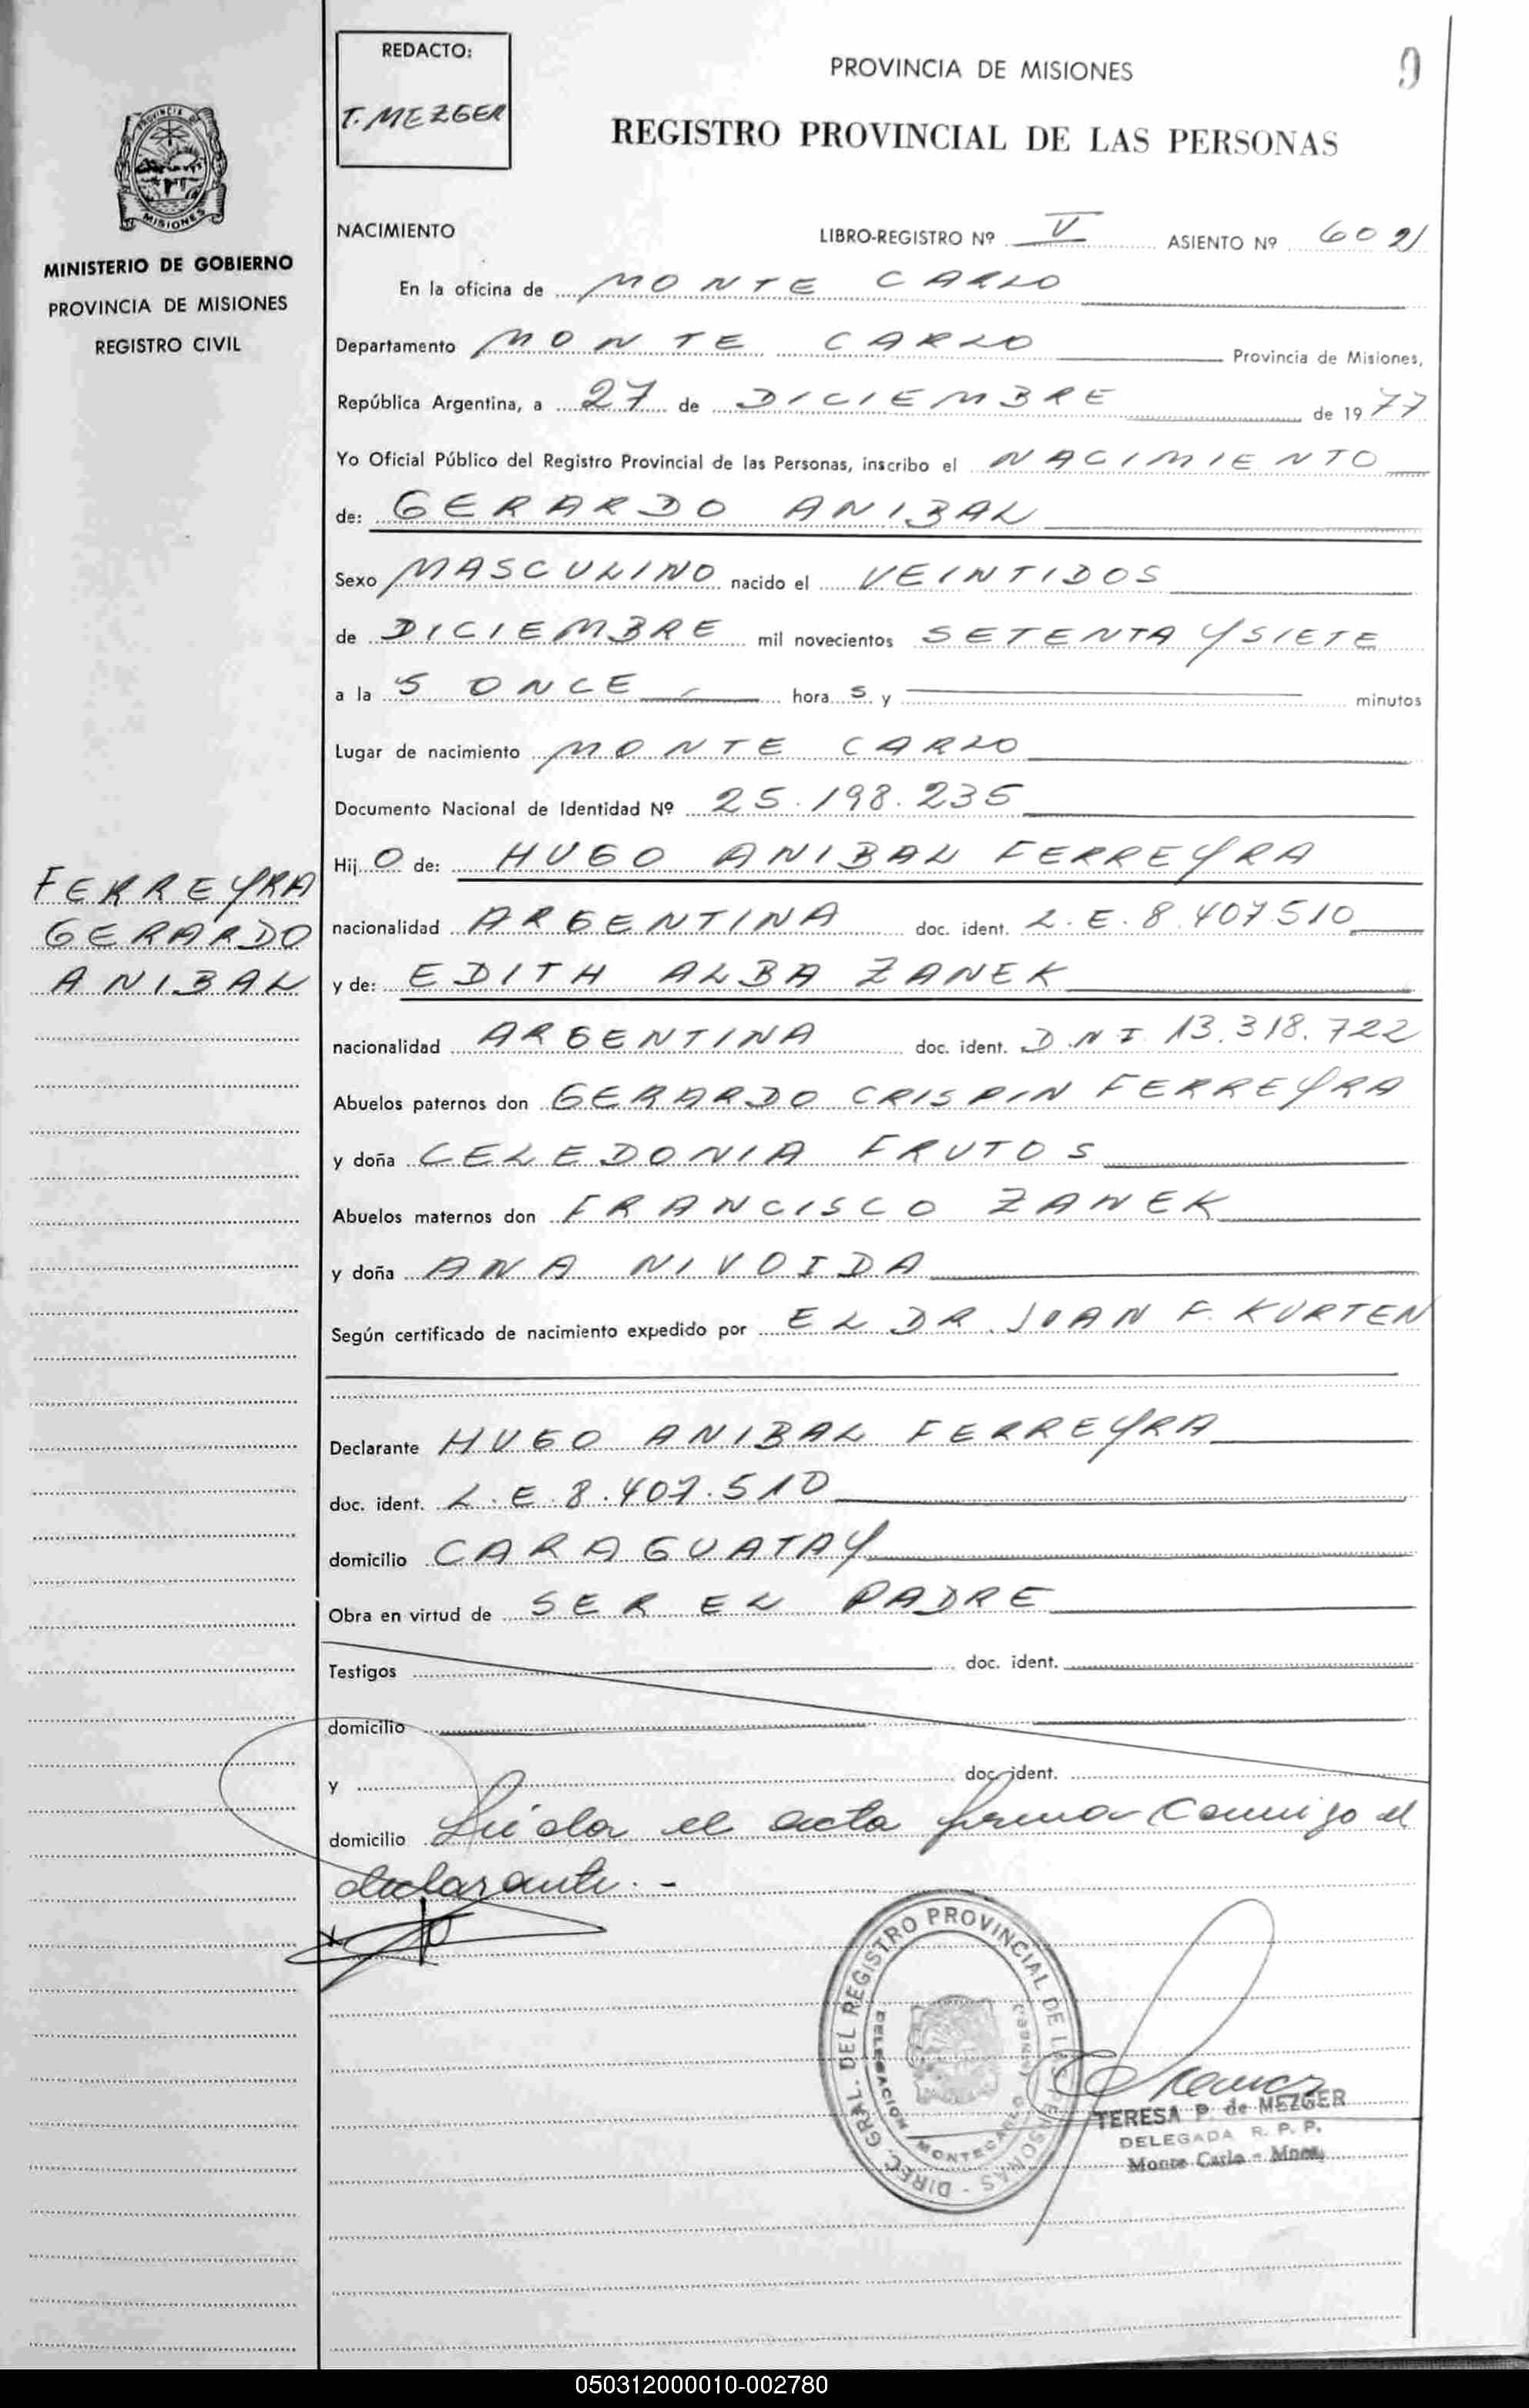 REDACTO:
T. MEZGER
PROVINCIA DE MISIONES
9
REGISTRO PROVINCIAL DE LAS PERSONAS
MISIONES
MINISTERIO DE GOBIERNO
PROVINCIA DE MISIONES
REGISTRO CIVIL
NACIMIENTO LIBRO-REGISTRO Nº V ASIENTO Nº 602
En la oficina de MONTE CARLO
Departamento MONTE CARLO Provincia de Misiones,
República Argentina, a 27 de DICIEMBRE de 1977
Yo Oficial Público del Registro Provincial de las Personas, inscribo el NACIMIENTO
de: GERARDO ANIBAL
Sexo MASCULINO nacido el VEINTIDOS
de DICIEMBRE mil novecientos SETENTA Y SIETE
a la S ONCE hora S y minutos
Lugar de nacimiento MONTE CARLO
Documento Nacional de Identidad Nº 25.198.235
Hij O de: HUGO ANIBAL FERREYRA
nacionalidad ARGENTINA doc. ident. L.E. 8.407.510
y de: EDITH ALBA ZANEK
nacionalidad ARGENTINA doc. ident. D.N.I. 13.318.722
Abuelos paternos don GERARDO CRISPIN FERREYRA
y doña CELEDONIA FRUTOS
Abuelos maternos don FRANCISCO ZANEK
y doña ANA NIVOIDA
Según certificado de nacimiento expedido por EL DR. JUAN F. KURTEN
Declarante HUGO ANIBAL FERREYRA
doc. ident. L.E. 8.407.510
domicilio CARAGUATAY
Obra en virtud de SER EL PADRE
Testigos doc. ident.
domicilio
y doc. ident.
domicilio Leida el acta firma conmigo el
declarante.-
FERREYRA
GERARDO
ANIBAL
DIREC. GRAL. DEL REGISTRO PROVINCIAL DE LAS PERSONAS
DELEGACION MONTECARLO
TERESA P. de MEZGER
DELEGADA R. P. P.
Monte Carlo - Mnes.
050312000010-002780